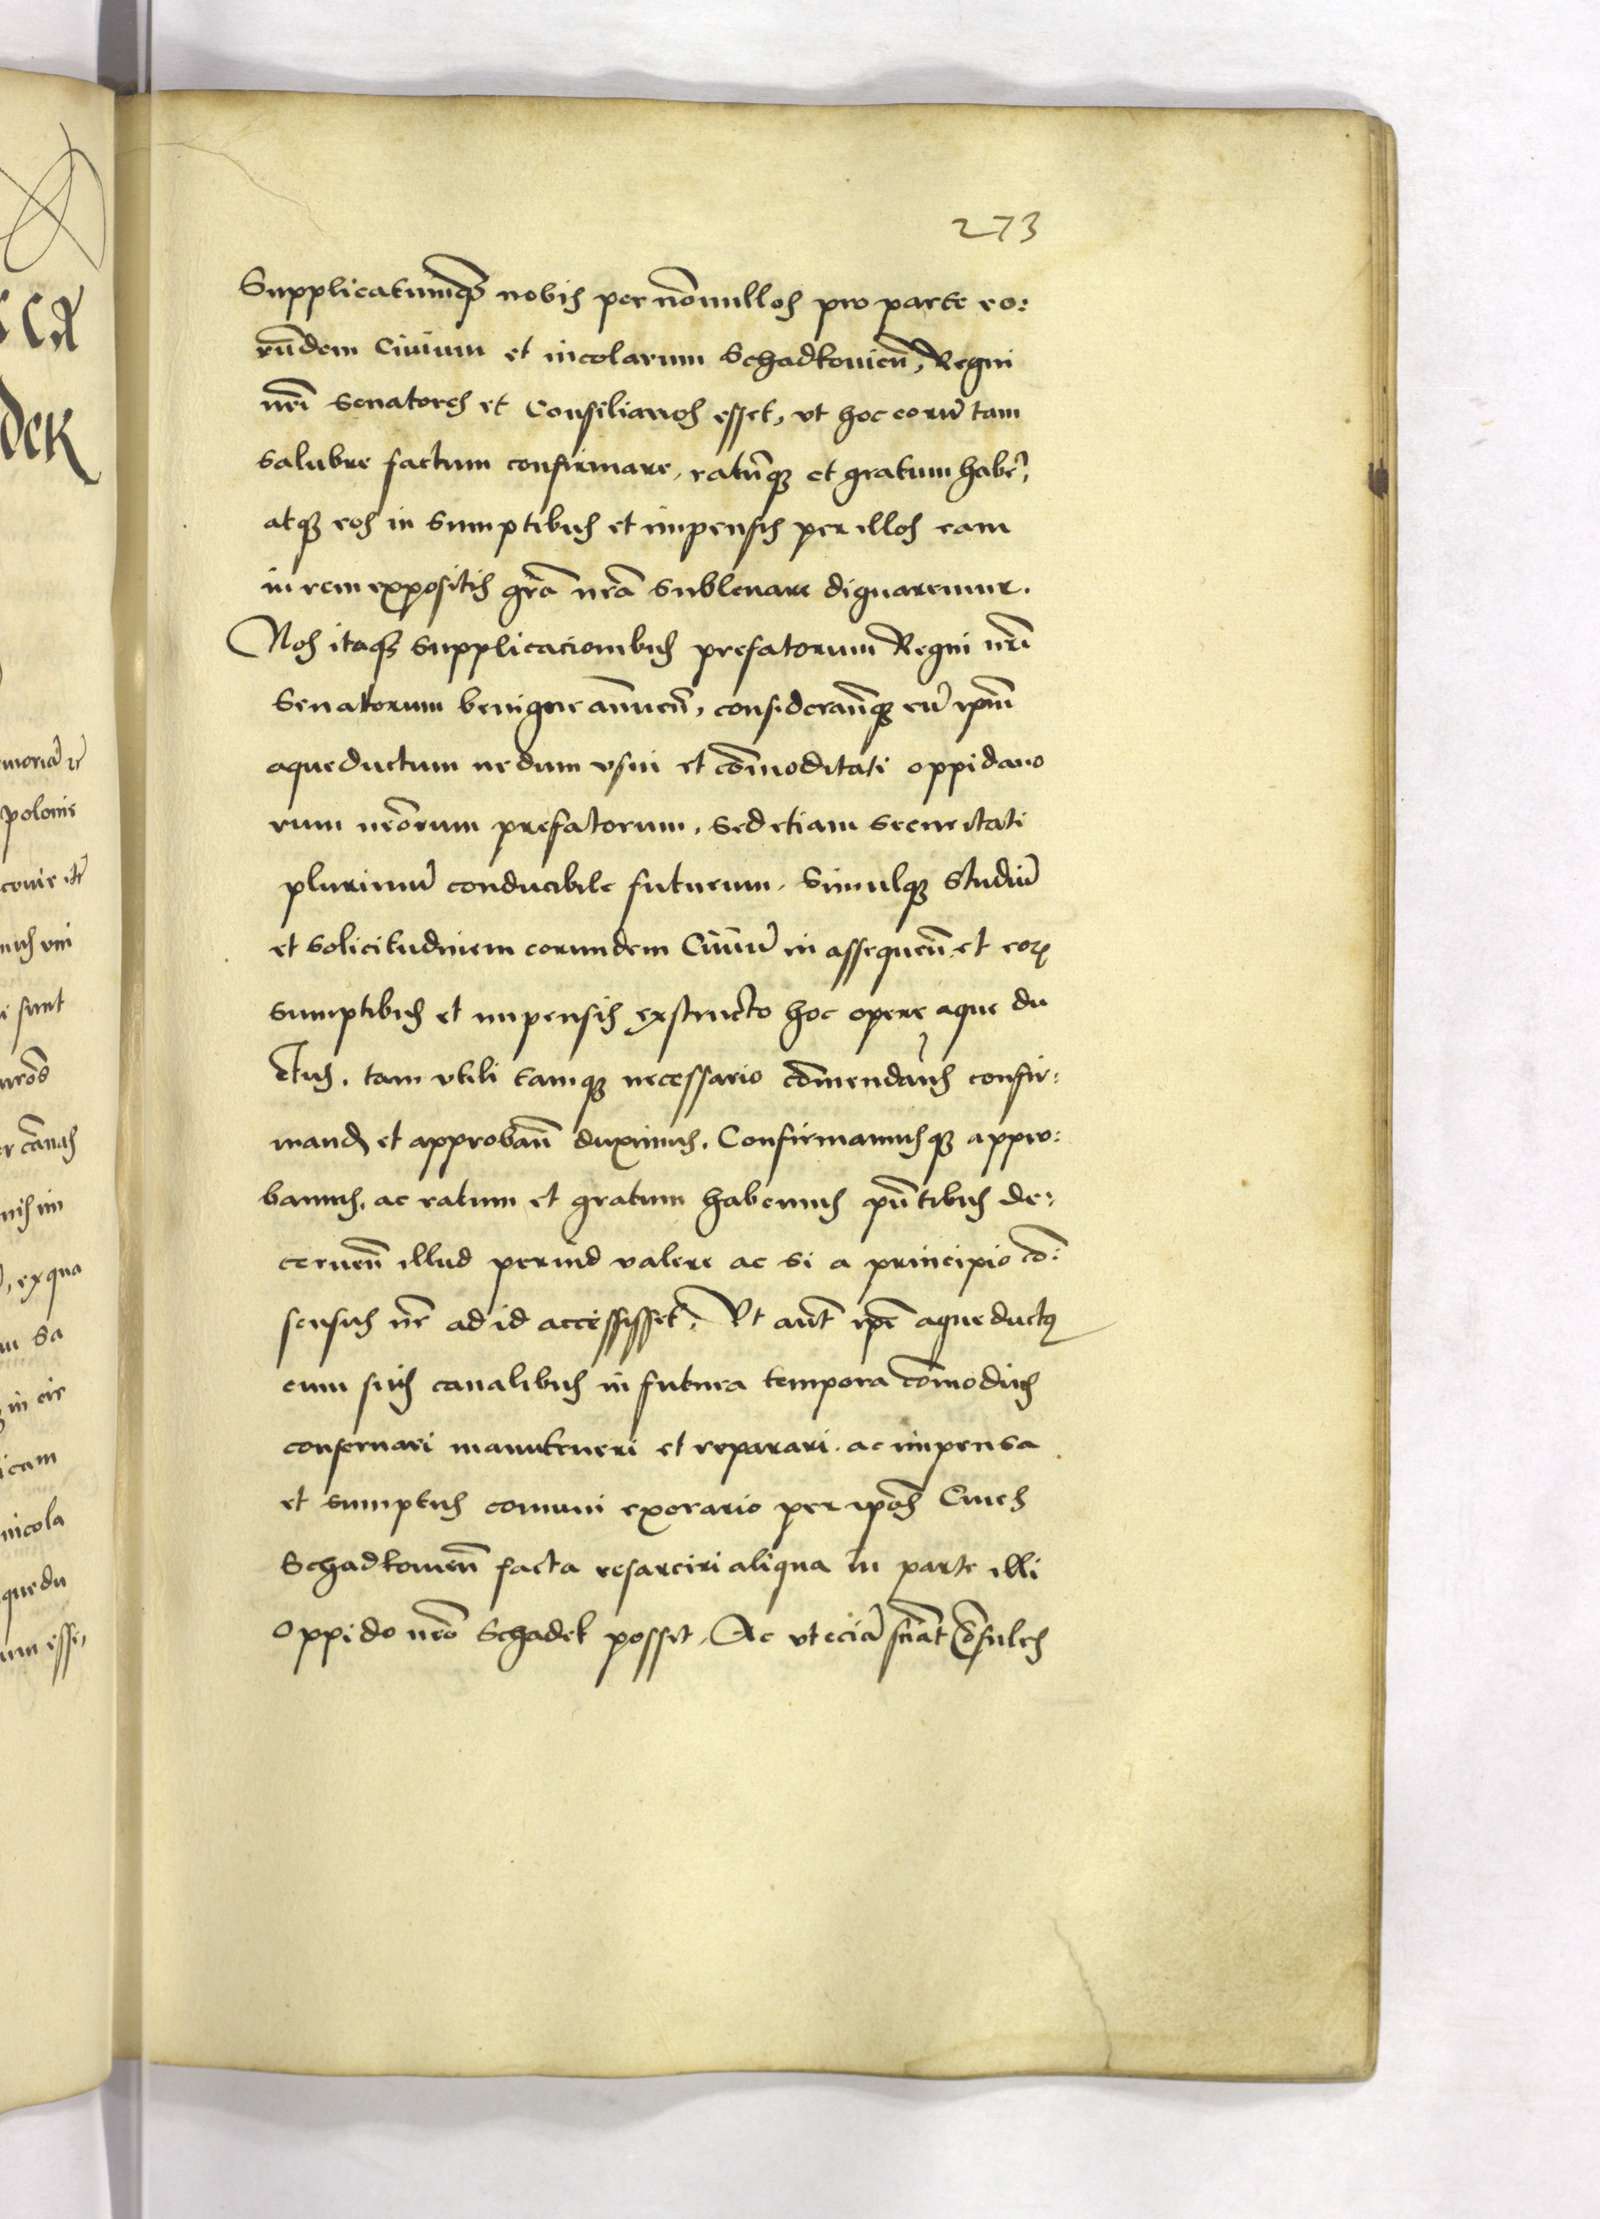 273
Supplicatumq3 nobis per nōnullos pro parte eo:
rūdem Ciuium et incolarum Schadkouien̄, Regni
nr̄i Senatores et Consiliarios esset, vt hoc eorū tam
salubre factum confirmare, ratūq3 et gratum habēr,
atq3 eos in sumptibus et impensis per illos eam
in rem expositis grā nrā subleuare dignaremur.
Nos itaq3 supplicacionibus prefatorum Regni nr̄i
Senatorum benigne annuen̄, consideranq3 eū ipm̄
aqueductum nedum vsui et cōmoditati oppidano
rum nrōrum prefatorum, sed etiam securitati
plurimū conducibile futurum, Simulq3 studiū
et solicitudinem eorundem Ciuiū in assequen̄ et eoꝝ
sumptibus et impensis exstructo hoc opere aque du
ctus, tam vtili tamq3 necessario cōmendan̄s confir:
mand et approban̄ duximus, Confirmamusq3 appro:
bamus, ac ratum et gratum habemus pn̄tibus de:
cernen̄ illud perind valere ac si a principio cō:
sensus nr̄ ad id accessisset, Vt aut̄ ipē aqueductus
cum suis canalibus in futura tempora cōmodius
conseruari manuteneri et reparari, ac impensa
et sumptus comuni ex erario per ipōs Ciues
Schadkouien̄ facta resarciri aliqua in parte illi
Oppido nrō Schadek posset, Ac vt eciā scīāt Cōsules
moriā
polonie
couie
sunt
nrōs
, ex qua
sa
in cir
icam
incola
quedu
um esse,
dek